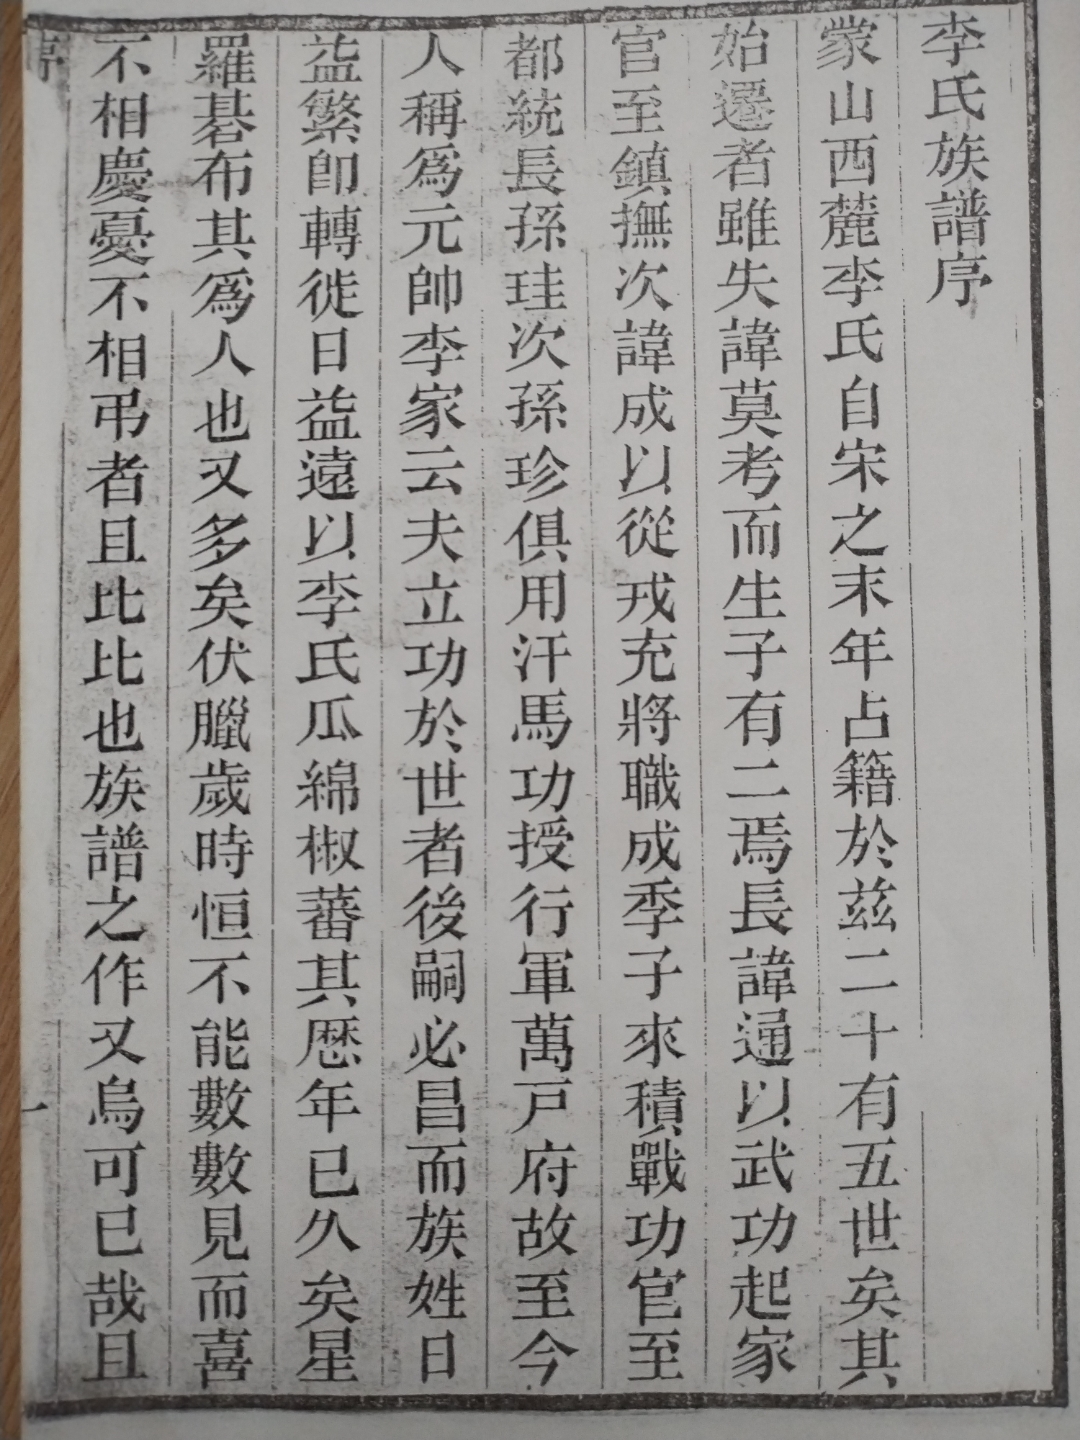 李氏族譜序
蒙山西麓李氏自宋之末年占籍於兹二十有五世矣其
始遷者雖失諱莫考而生子有二焉長諱通以武功起家
官至鎮撫次諱成以從戎充將職成季子來積戰功官至
都統長孫珪次孫珍俱用汗馬功授行軍萬戸府故至今
人稱爲元帥李家云夫立功於世者後嗣必昌而族姓日
益繁卽轉徙日益遠以李氏瓜綿椒蕃其歷年已久矣星
羅碁布其爲人也又多矣伏臘歲時恒不能數數見而喜
不相慶憂不相弔者且比比也族譜之作又烏可已哉且
序
一